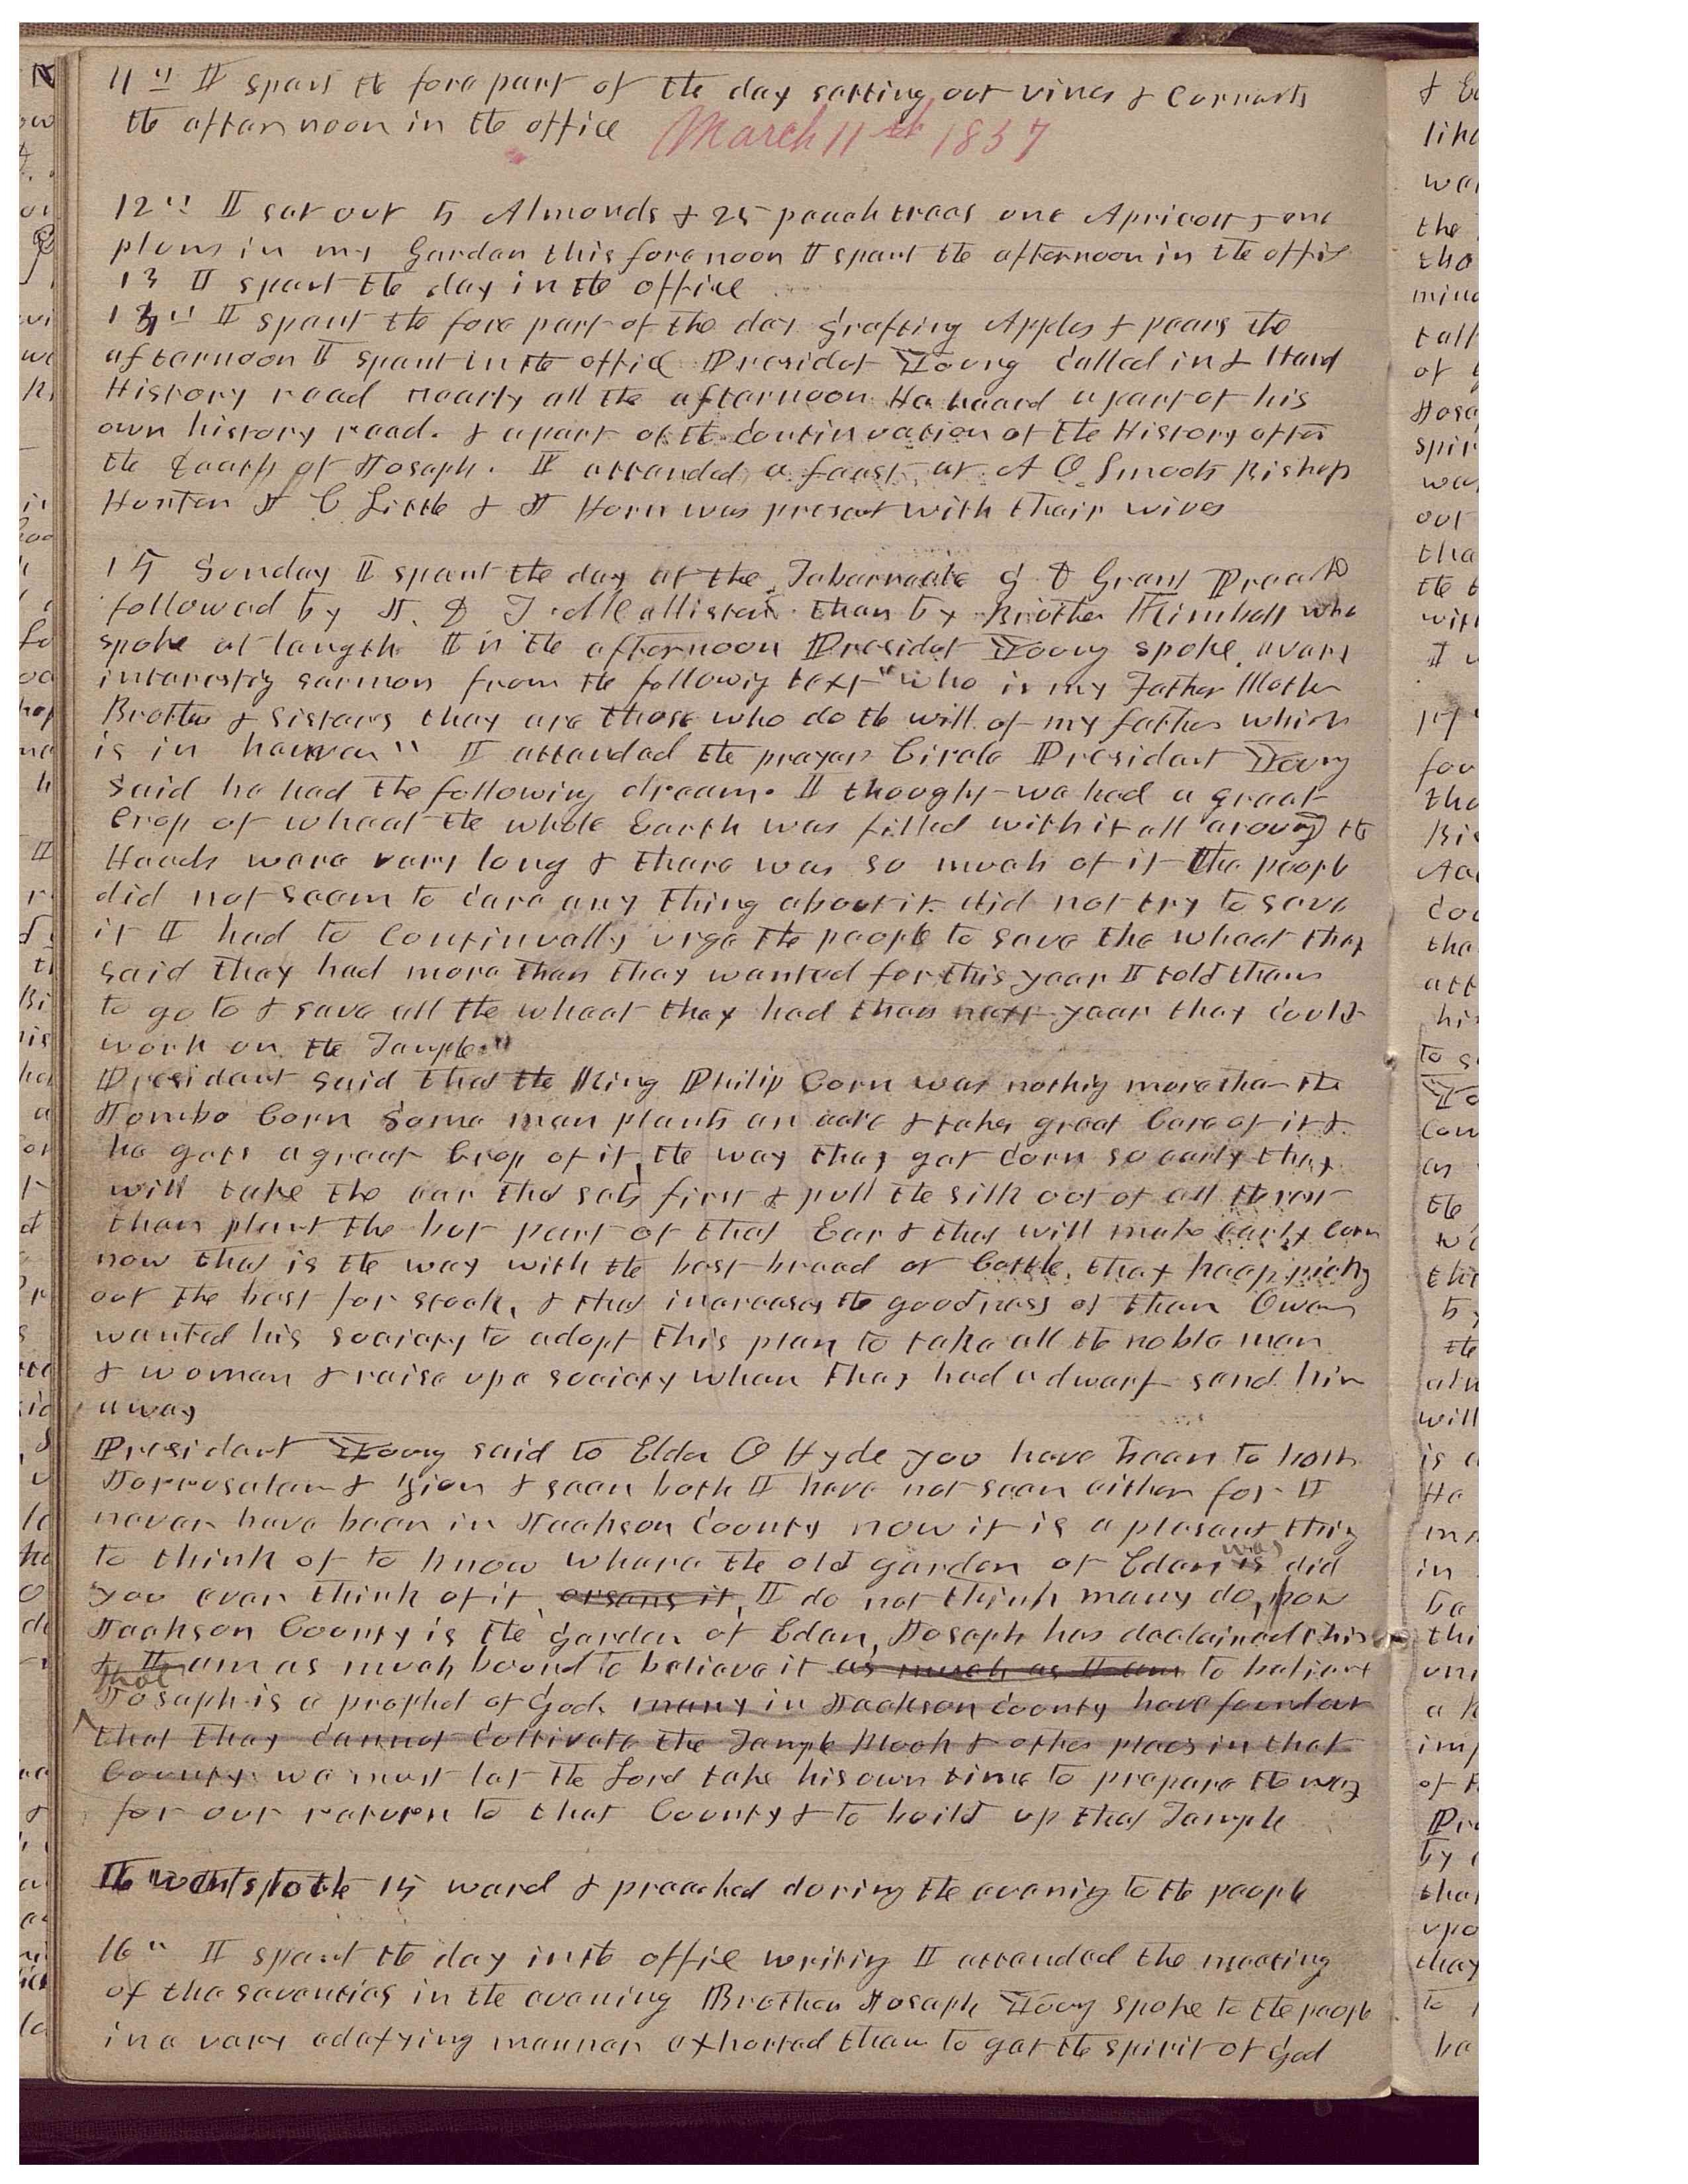 11" I spent the fore part of the day setting out vines & Currants
the afternoon in the office March 11th 1857
12" I set out 5 Almonds & 25 peach trees one Apricott & one
plum in my Garden this forenoon I spent the afternoon in the office
13 I spent the day in the office
14" I spent the fore part of the day grafting Apples & pears the
afternoon I spent in the office Presidet Young Called in & Heard
History read nearly all the afternoon He heard a part of his
own history read. & a part of the Continuation of the History after
the death of Joseph. I attended a feast at A O Smoots Bishop
Hunter J C Little & J Horn was present with their wives
15 Sunday I spent the day at the Tabernacle G D Grant Preachd
followed by J. D T. McAllister. then by Brother Kimball who
spoke at length In the afternoon Presidet Young spoke a very
interestig sermon from the followig text "who is my Father Mother
Brother & Sisters they are those who do the will of my father which
is in heaven" I attended the prayer Circle President Young
said he had the following dream. I thought we had a great
Crop of wheat the whole Earth was filled with it all around the
Heads were very long & there was so much of it the people
did not seem to care any thing about it did not try to save
it I had to Continually urge the people to save the wheat they
said they had more than they wanted for this year I told them
to go to & save all the wheat they had then next year they could
work on the Temple."
President said that the King Philip Corn was nothig more than the
Jombo Corn Some man plants an acre & takes great Care of it &
he gets a great Crop of it, the way they get corn so early they
will take the ear that sets first & pull the silk out of all the rest
then plant the but part of that Ear & that will make early Corn
now that is the way with the best breed of Cattle, they keep pickig
out the best for stock, & that increases the goodness of them Owen
wanted his society to adopt this plan to take all the noble men
& women & raise up a society when they had a dwarf send him
away
President Young said to Elder O Hyde you have been to both
Jerrusalem & Zion & seen both I have not seen either for I
never have been in Jackson County now it is a pleasant thing
to think of to know where the old garden of Eden is was did
you ever think of it, I do not think many do, for
Jackson County is the garden of Eden, Joseph has declaired this
& I am as much bound to believe it as much as I am to believe
that Joseph is a prophet of God. many in Jackson County have found out
that they cannot Cultivate the Temple Block & other places in that
County. we must let the Lord take his own time to prepare the way
for our return to that County & to build up that Temple
I went to the 15 ward & preached during the evenig to the people
16" I spent the day in the office writing I attended the meeting
of the seventies in the evening Brother Joseph Young spoke to the people
in a very edefying manner exhorted them to get the spirit of God